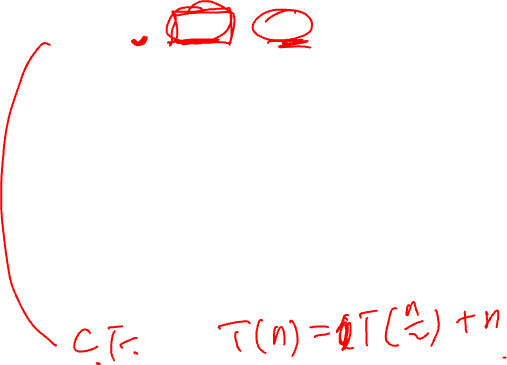 C.T. T(n) = 2T(n/2) + n